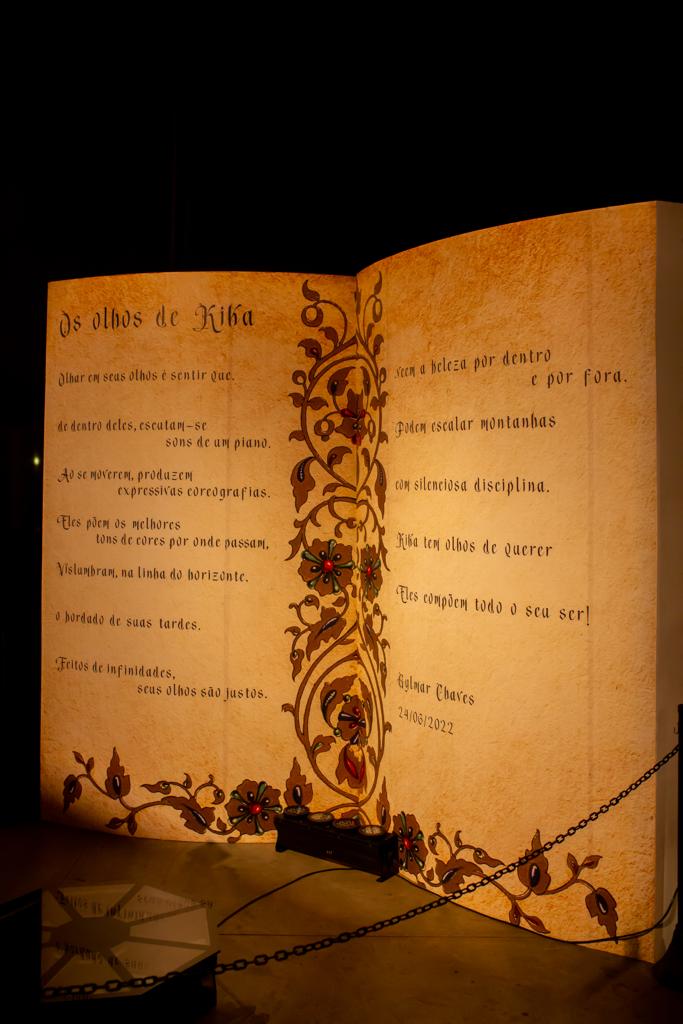 Os olhos de Kika
Olhar em seus olhos é sentir que.
de dentro deles, escutam-se
sons de um piano.
Ao se moverem, produzem
expressivas coreografias.
Eles põem os melhores
tons de cores por onde passam,
Vislumbram, na linha do horizonte.
o bordado de suas tardes.
Feitos de infinidades,
seus olhos são justos.
veem a beleza por dentro
e por fora.
Podem escalar montanhas
com silenciosa disciplina.
Kika tem olhos de querer
Eles compõem todo o seu ser!
Gylmar Chaves
24/06/2022